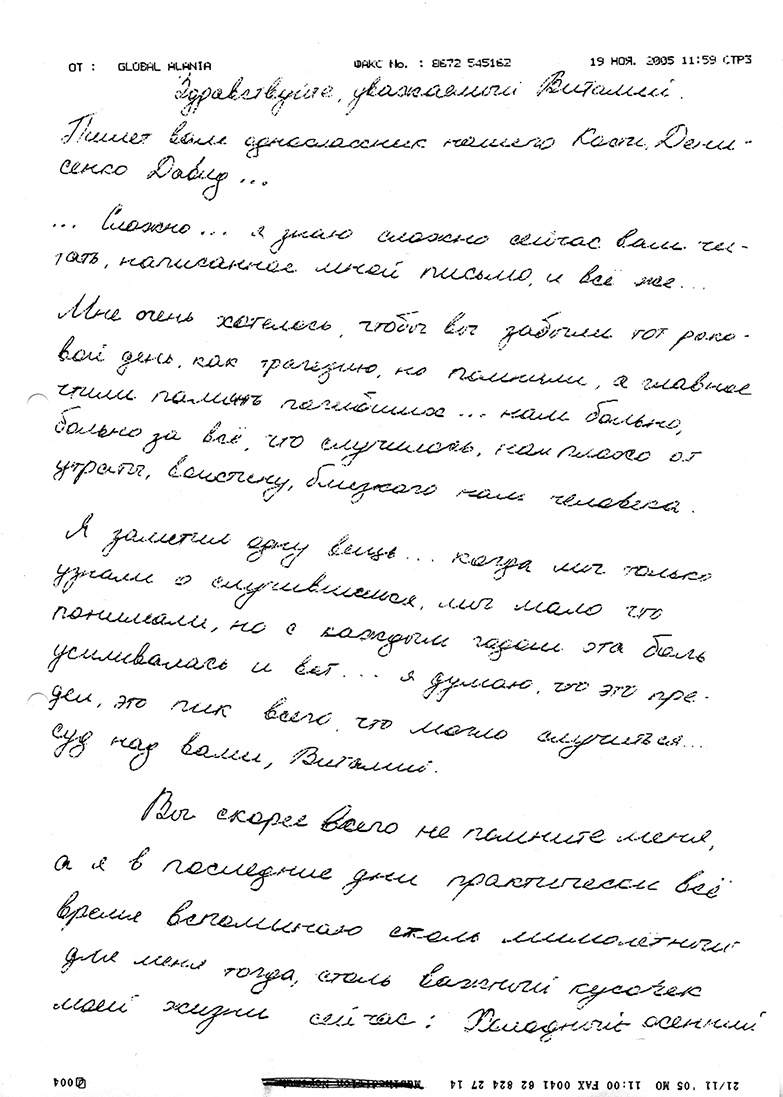 ОТ : GLOBAL ALANIA ФАКС No. : 8672 545162 19 НОЯ. 2005 11:59 СТР3
Здравствуйте, уважаемый Виталий.
Пишет вам одноклассник нашего Кости, Дени-
сенко Давид...
... Сложно... я знаю сложно сейчас вам чи-
тать, написанное мной письмо, и всё же...
Мне очень хотелось, чтобы вы забыли тот роко-
вой день, как трагедию, но помнили, а главное
чтили память погибших... нам больно,
больно за всё, что случилось, нам плохо от
утраты, воистину, близкого нам человека.
Я заметил одну вещь... когда мы только
узнали о случившемся, мы мало что
понимали, но с каждым годом эта боль
усиливалась и вот... я думаю, что это пре-
дел, это пик всего, что могло случиться...
суд над вами, Виталий.
Вы скорее всего не помните меня,
а я в последние дни практически всё
время вспоминаю столь мимолётный
для меня тогда, столь важный кусочек
моей жизни сейчас: Холодный осенний
21/11 '05 MO 11:00 FAX 0041 62 824 27 14
004